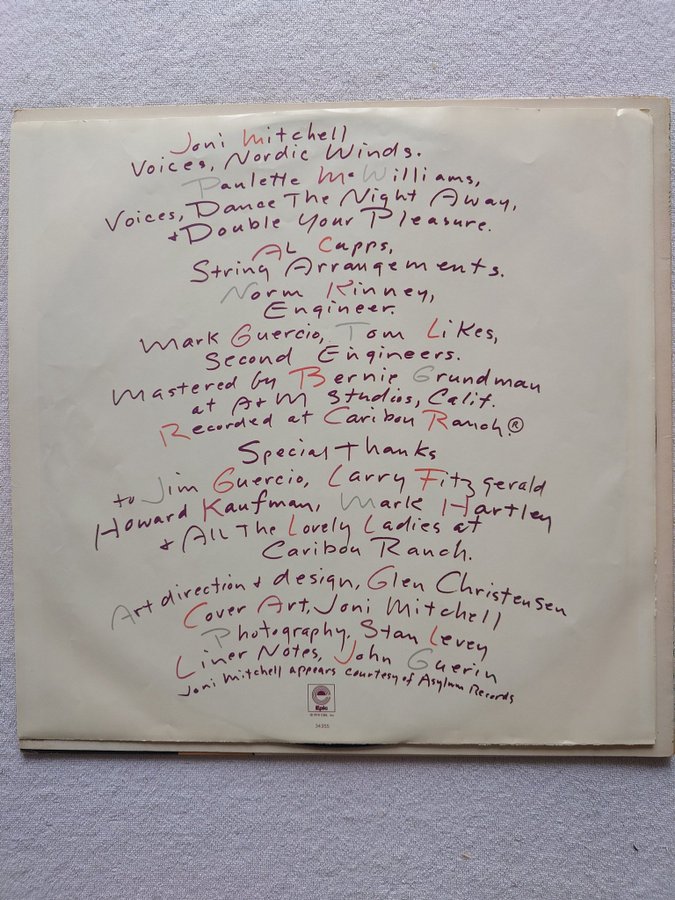 Joni Mitchell
Voices, Nordic Winds.
Paulette McWilliams,
Voices, Dance The Night Away,
+ Double Your Pleasure.
AL Capps,
String Arrangements.
Norm Kinney,
Engineer.
Mark Guercio, Tom Likes,
Second Engineers.
Mastered by Bernie Grundman
at A+M Studios, Calif.
Recorded at Caribou Ranch.®
Special Thanks
to Jim Guercio, Larry Fitzgerald
Howard Kaufman, Mark Hartley
+ All The Lovely Ladies at
Caribou Ranch.
Art direction + design, Glen Christensen
Cover Art, Joni Mitchell
Photography, Stan Levey
Liner Notes, John Guerin
Joni Mitchell appears courtesy of Asylum Records
Epic
34355